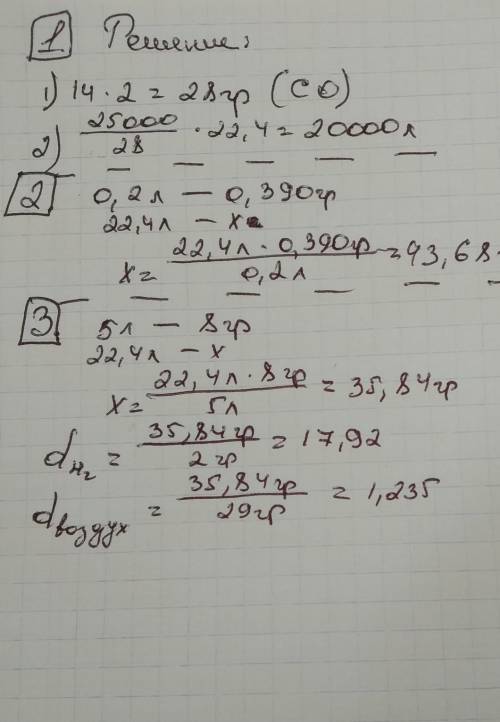 1 Решение:
1) 14 · 2 = 28гр (CO)
2) 25000/28 · 22,4 = 20000л
2 0,2л — 0,390гр
22,4л — x
x = 22,4л · 0,390гр/0,2л = 93,68
3 5л — 8гр
22,4л — x
x = 22,4л · 8гр/5л = 35,84гр
dH₂ = 35,84гр/2гр = 17,92
dвоздух = 35,84гр/29гр = 1,235